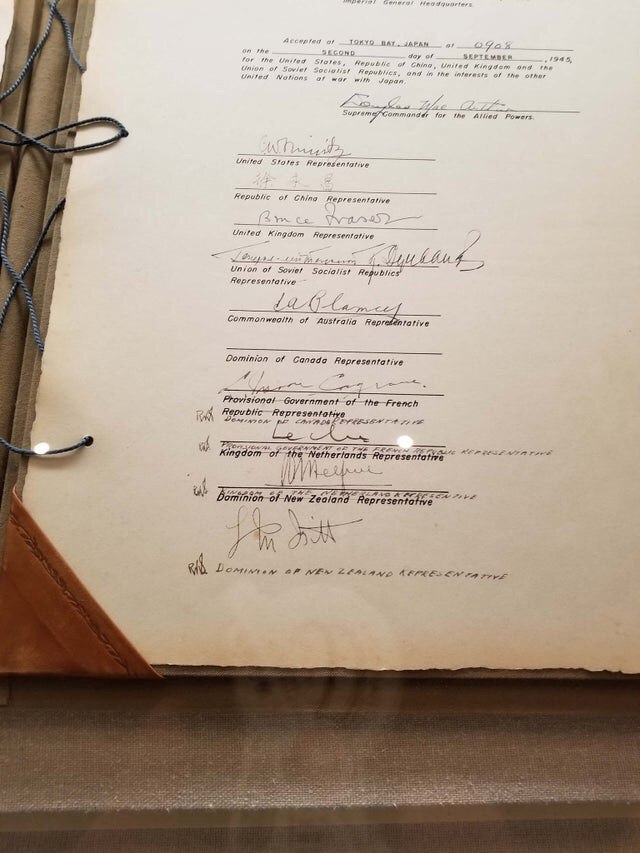 Imperial General Headquarters.
Accepted at TOKYO BAY, JAPAN at 0908
on the SECOND day of SEPTEMBER, 1945,
for the United States, Republic of China, United Kingdom and the
Union of Soviet Socialist Republics, and in the interests of the other
United Nations at war with Japan.
Douglas MacArthur
Supreme Commander for the Allied Powers.
CW Nimitz
United States Representative
徐永昌
Republic of China Representative
Bruce Fraser
United Kingdom Representative
Union of Soviet Socialist Republics
Representative
T.A. Blamey
Commonwealth of Australia Representative
Dominion of Canada Representative
Cosgrave.
Provisional Government of the French
Republic Representative
DOMINION OF CANADA REPRESENTATIVE
Leclerc
PROVISIONAL GOVERNMENT OF THE FRENCH REPUBLIC REPRESENTATIVE
Kingdom of the Netherlands Representative
Helfrich
KINGDOM OF THE NETHERLANDS REPRESENTATIVE
Dominion of New Zealand Representative
L M Isitt
DOMINION OF NEW ZEALAND REPRESENTATIVE